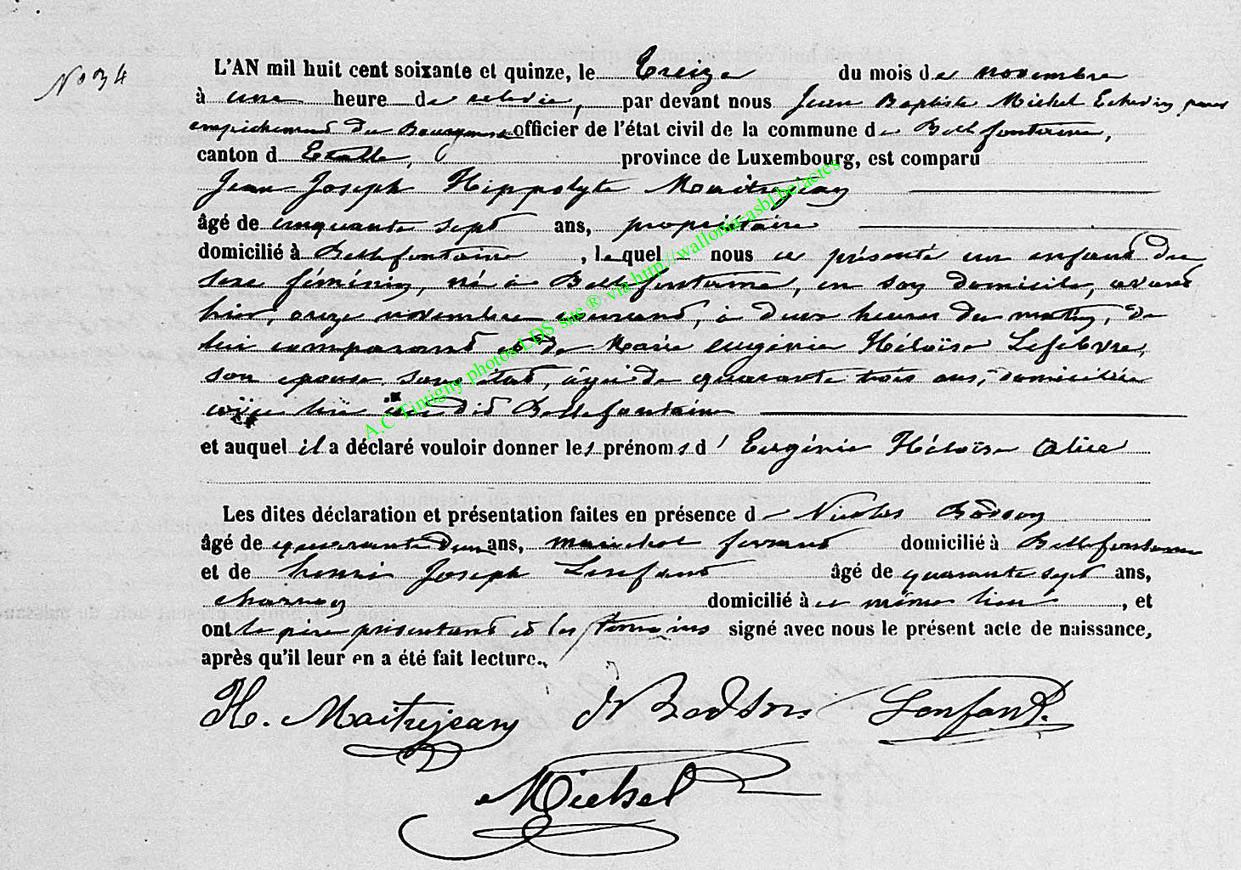 No 34
L'AN mil huit cent soixante et quinze, le Treize du mois de novembre
à une heure de relevée, par devant nous Jean Baptiste Michel Echevin pour
empêchement du Bourgmestre officier de l'état civil de la commune de Bellefontaine,
canton d Etalle, province de Luxembourg, est comparu
Jean Joseph Hippolyte Maitrejean
âgé de cinquante sept ans, propriétaire
domicilié à Bellefontaine, lequel nous a présenté un enfant du
sexe féminin, né à Bellefontaine, en son domicile, avant
hier, onze novembre courant, à deux heures du matin, de
lui comparant et de Marie Eugénie Héloïse Lefebvre,
son épouse, sans état, âgée de quarante trois ans, domiciliée
dit Bellefontaine
et auquel il a déclaré vouloir donner les prénoms d' Eugénie Héloïse Alice
Les dites déclaration et présentation faites en présence de Nicolas Bodson
âgé de quarante d'un ans, maréchal ferrant domicilié à Bellefontaine
et de henri Joseph Lenfant âgé de quarante sept ans,
charron domicilié à ce même lieu, et
ont le père présentant et les témoins signé avec nous le présent acte de naissance,
après qu'il leur en a été fait lecture.
H. Maitrejean N Bodson Lenfant.
Michel
A.C Tintigny photos LDS site ® via http://wallonia-asbl.be/actes